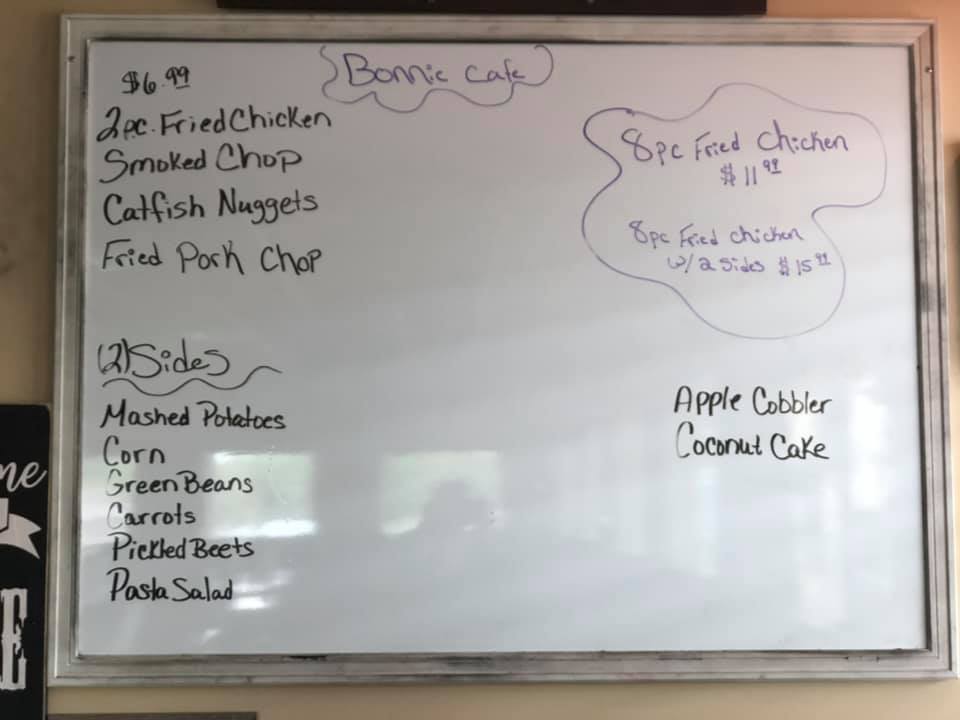 Bonnie Cafe
$6.99
2pc. Fried Chicken
Smoked Chop
Catfish Nuggets
Fried Pork Chop
8pc Fried Chicken
$11.99
8pc Fried chicken
w/2 sides $15.99
(2) Sides
Mashed Potatoes
Corn
Green Beans
Carrots
Pickled Beets
Pasta Salad
Apple Cobbler
Coconut Cake
me
E